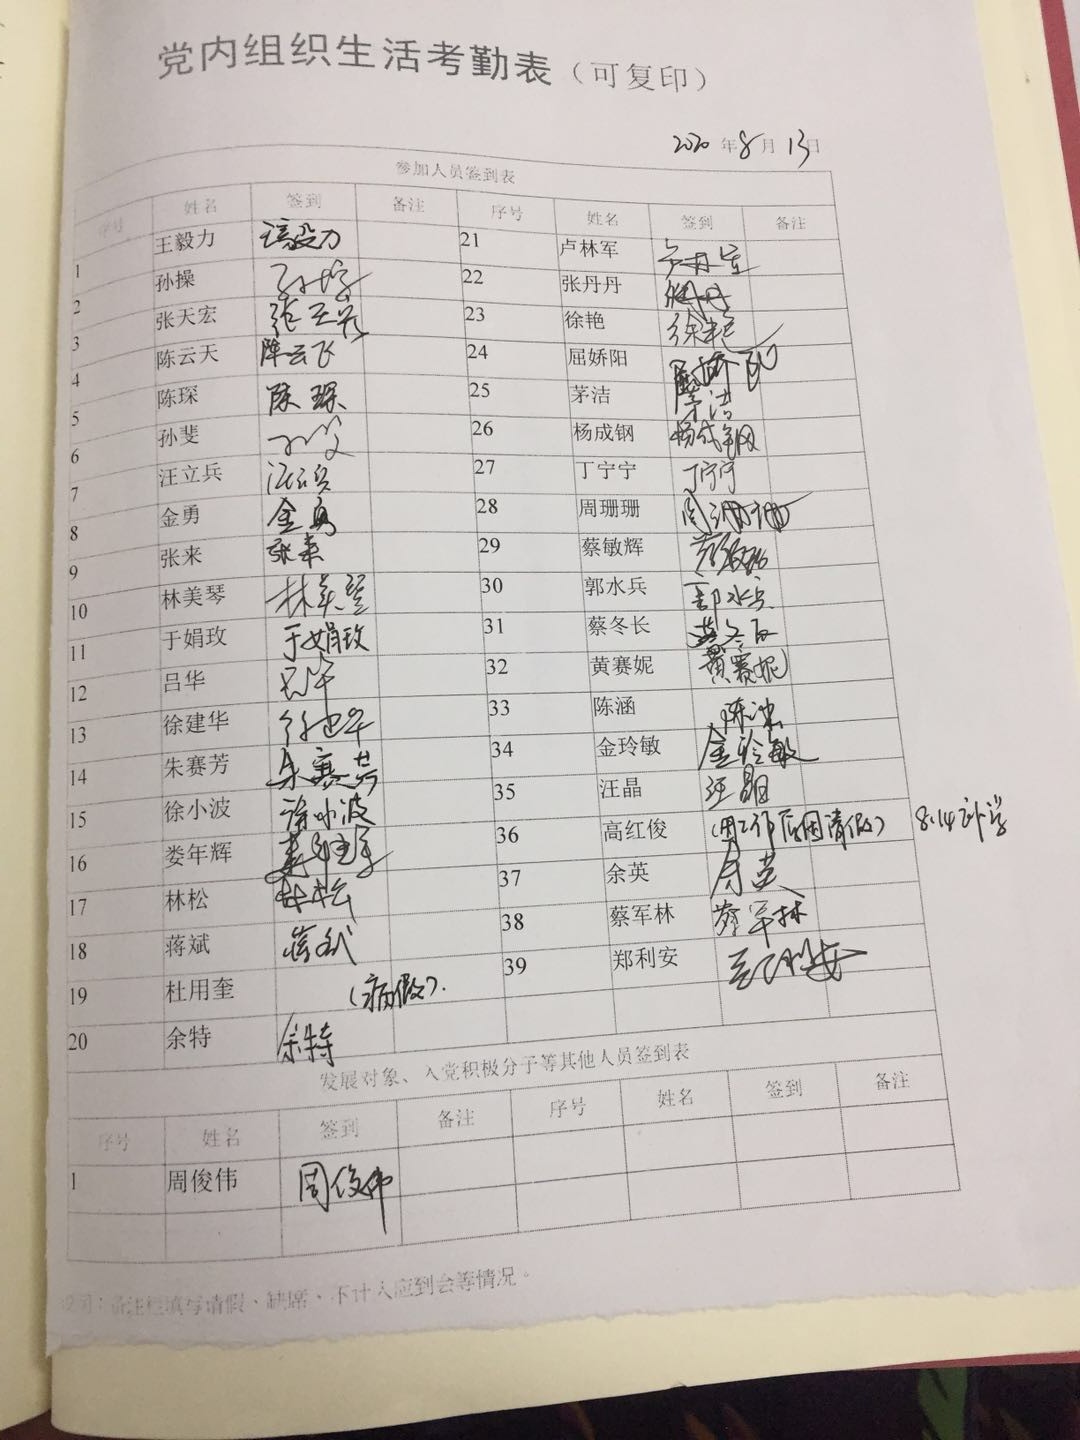 党内组织生活考勤表（可复印）
2020 年 8 月 13 日
参加人员签到表
序号 姓名 签到 备注 序号 姓名 签到 备注
1 王毅力 王毅力 21 卢林军
2 孙操 孙操 22 张丹丹 张丹丹
3 张天宏 张天宏 23 徐艳 徐艳
4 陈云天 陈云飞 24 屈娇阳 屈娇阳
5 陈琛 陈琛 25 茅洁 茅洁
6 孙斐 孙斐 26 杨成钢 杨成钢
7 汪立兵 汪立兵 27 丁宁宁 丁宁宁
8 金勇 金勇 28 周珊珊 周珊珊
9 张来 张来 29 蔡敏辉 蔡敏辉
10 林美琴 林美琴 30 郭水兵 郭水兵
11 于娟玫 于娟玫 31 蔡冬长 蔡冬长
12 吕华 吕华 32 黄赛妮 黄赛妮
13 徐建华 徐建华 33 陈涵 陈涵
14 朱赛芳 朱赛芳 34 金玲敏 金玲敏
15 徐小波 徐小波 35 汪晶 汪晶
16 娄年辉 36 高红俊 （因工作原因请假） 8.14补学
17 林松 林松 37 余英 余英
18 蒋斌 蒋斌 38 蔡军林 蔡军林
19 杜用奎 （病假）. 39 郑利安 郑利安
20 余特 余特
发展对象、入党积极分子等其他人员签到表
序号 姓名 签到 备注 序号 姓名 签到 备注
1 周俊伟 周俊伟
说明：备注栏填写请假、缺席、不计入应到会等情况。